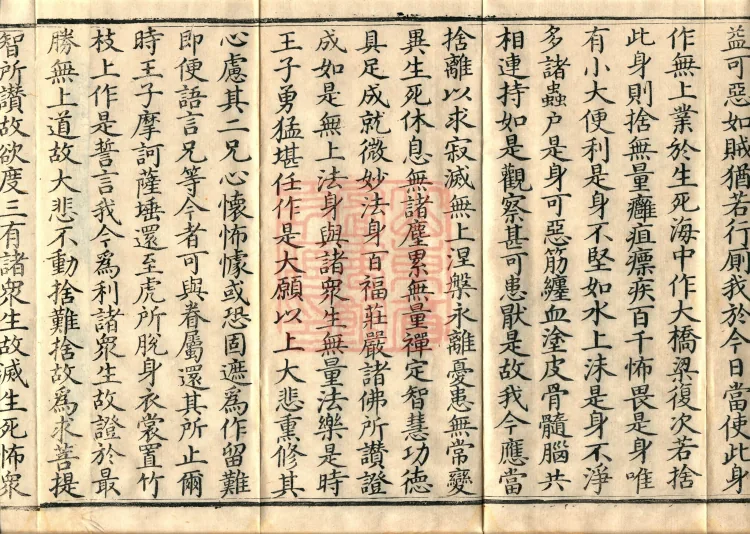 益可惡如賊猶若行厠我於今日當使此身
作無上業於生死海中作大橋梁復次若捨
此身則捨無量癰疽瘭疾百千怖畏是身唯
有小大便利是身不堅如水上沫是身不淨
多諸蟲户是身可惡筋纏血塗皮骨髓腦共
相連持如是觀察甚可患猒是故我今應當
捨離以求寂滅無上涅槃永離憂患無常變
異生死休息無諸塵累無量禪定智慧功德
具足成就微妙法身百福莊嚴諸佛所讚證
成如是無上法身與諸衆生無量法樂是時
王子勇猛堪任作是大願以上大悲熏修其
心慮其二兄心懷怖懅或恐固遮為作留難
即便語言兄等今者可與眷屬還其所止爾
時王子摩訶薩埵還至虎所脫身衣裳置竹
枝上作是誓言我今為利諸衆生故證於最
勝無上道故大悲不動捨難捨故為求菩提
智所讚故欲度三有諸衆生故滅生死怖衆